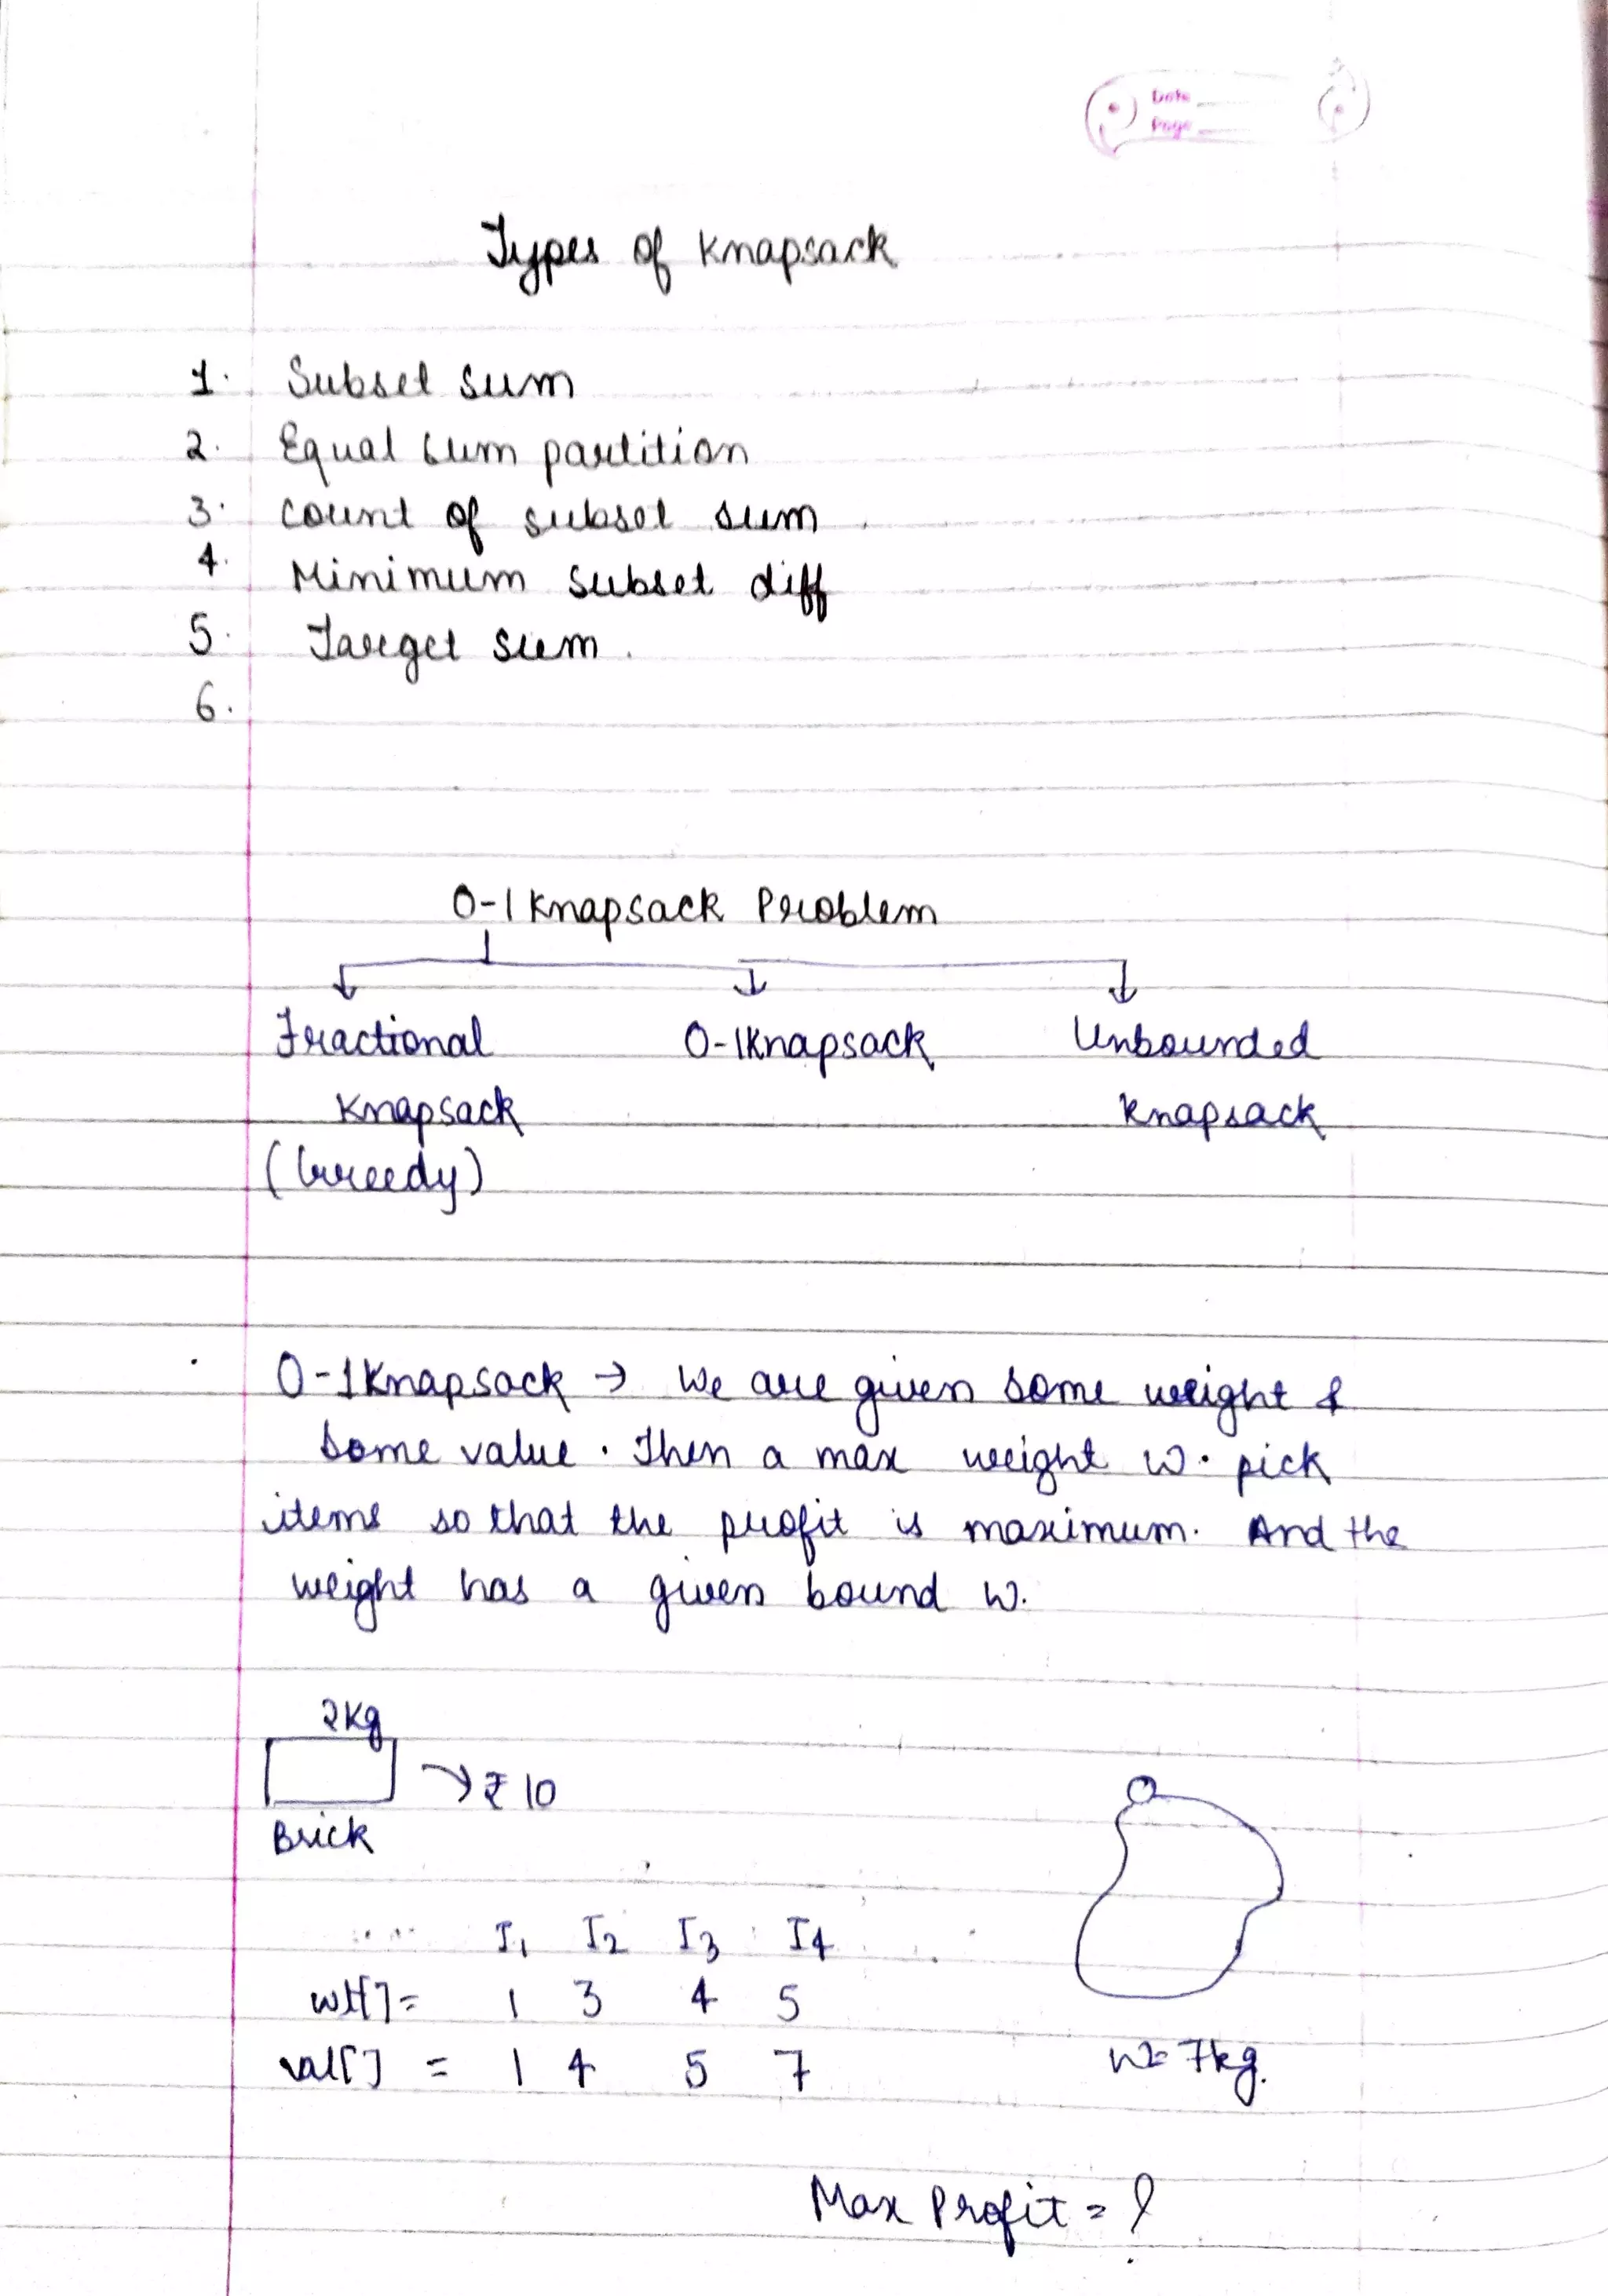 Date
Page
Types of Knapsack
1. Subset sum
2. Equal sum partition
3. Count of subset sum.
4. Minimum subset diff
5. Target sum.
6.
0-1 Knapsack Problem
Fractional 0-1Knapsack Unbounded
Knapsack Knapsack
(Greedy)
0-1Knapsack → We are given some weight &
some value. Then a max weight W. pick
items so that the profit is maximum. And the
weight has a given bound W.
2Kg
→ ₹ 10
Brick
I1 I2 I3 I4
wt[] = 1 3 4 5
val[] = 1 4 5 7
W= 7kg.
Max Profit = ?